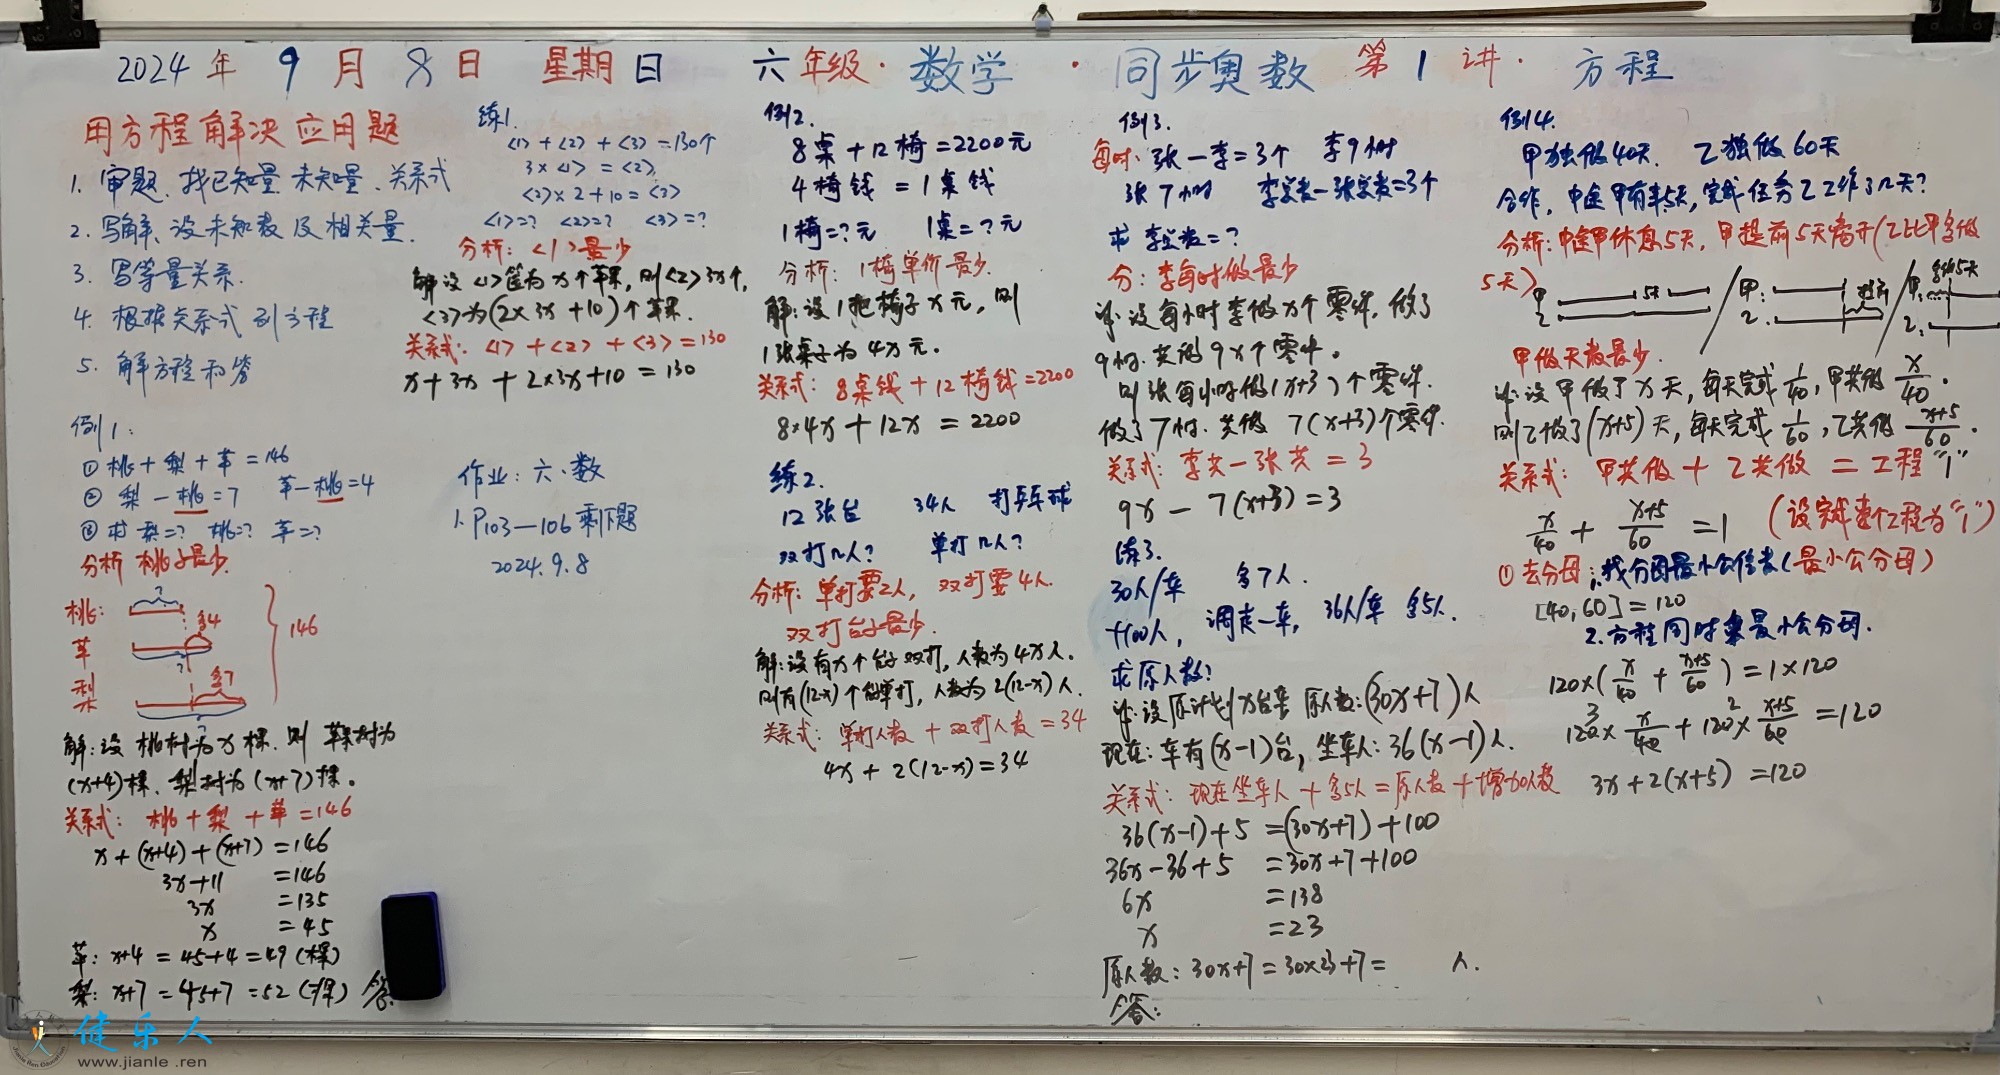 2024年 9月 8日 星期日 六年级·数学 · 同步奥数 第1讲· 方程
用方程解决应用题
1. 审题、找已知量 未知量、关系式
2. 写解、设未知数及相关量.
3. 写等量关系.
4. 根据关系式列方程
5. 解方程和答
例1:
① 桃+梨+苹=146
② 梨-桃=7 苹-桃=4
③ 求梨=? 桃=? 苹=?
分析 桃子最少.
桃: ?
苹 多4 ?
梨 多7 ?
146
解:设桃树为x棵.则苹果树为
(x+4)棵、梨树为(x+7)棵。
关系式: 桃+梨+苹=146
x+(x+4)+(x+7)=146
3x+11 =146
3x =135
x =45
苹: x+4=45+4=49(棵)
梨: x+7=45+7=52(棵) 答
练1.
<1>+<2>+<3>=130个
3×<1>=<2>
<2>×2+10=<3>
<1>=? <2>=? <3>=?
分析: <1>最少
解设<1>筐为x个苹果,则<2>3x个,
<3>为(2×3x+10)个苹果.
关系式: <1>+<2>+<3>=130
x+3x+2×3x+10=130
作业: 六.数
1. P103—106 剩下题
2024.9.8
例2.
8桌+12椅=2200元
4椅钱=1桌钱
1椅=?元 1桌=?元
分析: 1椅单价最少.
解:设1把椅子x元,则
1张桌子为4x元.
关系式: 8桌钱+12椅钱=2200
8×4x+12x=2200
练2.
12张台 34人 打乒乓球
双打几人? 单打几人?
分析: 单打要2人, 双打要4人.
双打台子最少.
解:设有x个台子双打,人数为4x人.
则有(12-x)个台单打,人数为2(12-x)人.
关系式: 单打人数+双打人数=34
4x+2(12-x)=34
例3.
每时: 张-李=3个 李9小时
张7小时 李总数-张总数=3个
求 李总数=?
分: 李每时做最少
解:设每小时李做x个零件,做了
9小时.共做9x个零件。
则张每小时做(x+3)个零件.
做了7小时.共做7(x+3)个零件.
关系式: 李共-张共=3
9x-7(x+3)=3
练3.
30人/车 多7人.
+100人, 调走一车, 36人/车 多5人.
求原人数?
解:设原计划x台车 原人数:(30x+7)人
现在:车有(x-1)台,坐车人:36(x-1)人.
关系式: 现在坐车人+多5人=原人数+增加人数
36(x-1)+5=(30x+7)+100
36x-36+5=30x+7+100
6x =138
x =23
原人数: 30x+7=30×23+7= 人.
答:
例4.
甲独做40天. 乙独做60天
合作, 中途甲有事5天,完成任务乙工作了几天?
分析:中途甲休息5天, 甲提前5天离开(乙比甲多做
5天)
甲 5天
乙
甲:
乙.
提前
甲: 多做5天
乙:
甲做天数最少.
解:设甲做了x天,每天完成1/40,甲共做x/40.
则乙做了(x+5)天,每天完成1/60,乙共做(x+5)/60.
关系式: 甲共做+乙共做=工程"1"
x/40+(x+5)/60=1 (设完成整个工程为"1")
① 去分母: 1.找分母最小公倍数(最小公分母)
[40,60]=120
2.方程同时乘最小公分母.
120×(x/40+(x+5)/60)=1×120
120×x/40+120×(x+5)/60=120
3 2
3x+2(x+5)=120
健乐人
www.jianle.ren